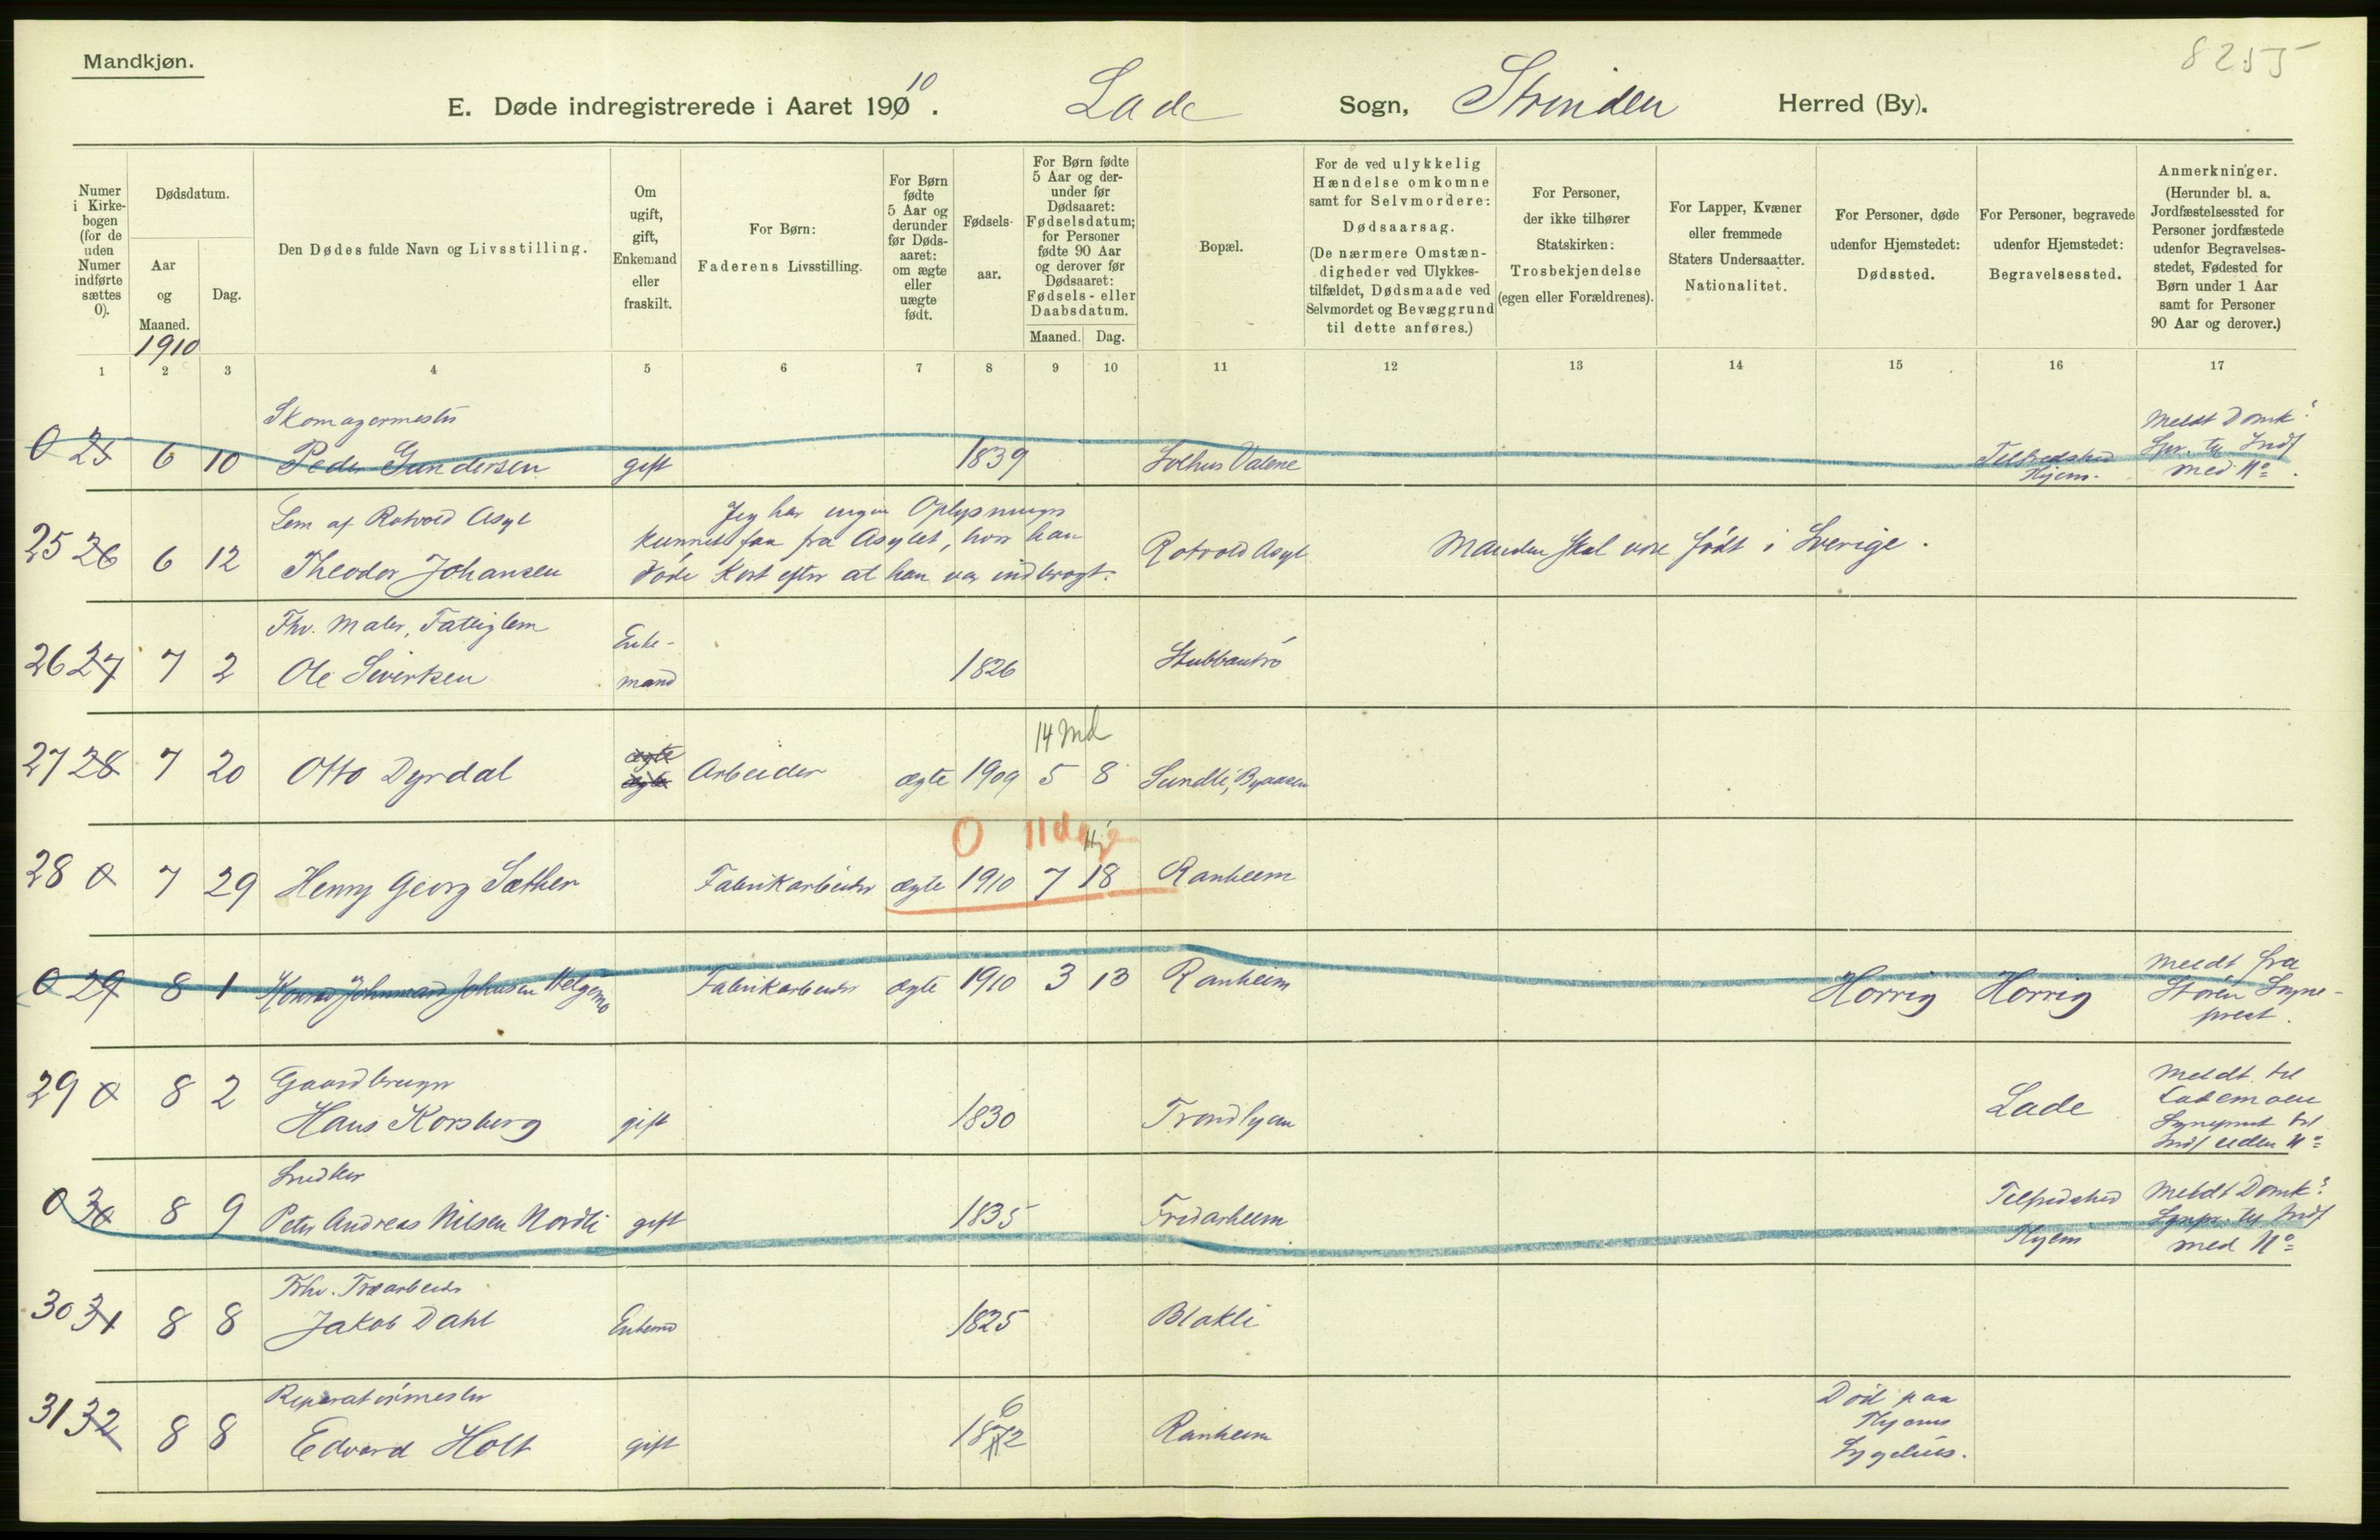 Mandkjøn.
8255
E. Døde indregistrerede i Aaret 1910. Lade Sogn, Strinden Herred (By).
Numer i Kirkebogen (for de uden Numer indførte sættes 0).
Dødsdatum.
Aar og Maaned.
1910
Dag.
Den Dødes fulde Navn og Livsstilling.
Om ugift, gift, Enkemand eller fraskilt.
For Børn: Faderens Livsstilling.
For Børn fødte 5 Aar og derunder før Dødsaaret: om ægte eller uægte født.
Fødselsaar.
For Børn fødte 5 Aar og derunder før Dødsaaret: Fødselsdatum; for Personer fødte 90 Aar og derover før Dødsaaret: Fødsels- eller Daabsdatum.
Maaned. Dag.
Bopæl.
For de ved ulykkelig Hændelse omkomne samt for Selvmordere: Dødsaarsag. (De nærmere Omstændigheder ved Ulykkestilfældet, Dødsmaade ved Selvmordet og Bevæggrund til dette anføres.)
For Personer, der ikke tilhører Statskirken: Trosbekjendelse (egen eller Forældrenes).
For Lapper, Kvæner eller fremmede Staters Undersaatter. Nationalitet.
For Personer, døde udenfor Hjemstedet: Dødssted.
For Personer, begravede udenfor Hjemstedet: Begravelsessted.
Anmerkninger. (Herunder bl. a. Jordfæstelsessted for Personer jordfæstede udenfor Begravelsesstedet, Fødested for Børn under 1 Aar samt for Personer 90 Aar og derover.)
1 2 3 4 5 6 7 8 9 10 11 12 13 14 15 16 17
Skomagermester
0 25 6 10 Peder Gundersen gift 1839 Solhus Valene Tilfredshed Hjem. Meldt Domk. Spr. til Indf med No.
Lem af Rotvold Asyl
25 26 6 12 Theodor Johansen Jeg har ingen Oplysninger kunnet faa fra Asylet, hvor han døde kort efter at han var indbragt. Rotvold Asyl Manden skal være født i Sverige.
Fhv. Maler, Fattiglem
26 27 7 2 Ole Sivertsen Enkemand 1826 Stubbantrø
14 Md
27 28 7 20 Otto Dyrdal ægte Arbeider ægte 1909 5 8 Sundli, Byaasen
0 11 dage
28 0 7 29 Henry Georg Sæther Fabrikarbeider ægte 1910 7 18 Ranheim
0 29 8 1 Konrad Johnmann Johnsen Helgemo Fabrikarbeider ægte 1910 3 13 Ranheim Horrig Horrig Meldt fra Støren Sogneprest.
Gaardbruger
29 0 8 2 Hans Korsberg gift 1830 Trondlyen Lade Meldt til Lademoen Sogneprest til Indf uden No
Snedker
0 30 8 9 Peter Andreas Nilsen Nordli gift 1835 Fredarheim Tilfredshed Hjem Meldt Domk. Sognepr. til Indf med No
Fhv. Træarbeider
30 31 8 8 Jakob Dahl Enkemd 1825 Blakli
Reparatørmester
31 32 8 8 Edvard Holt gift 1862 Ranheim Død paa Hjems Sygehus.